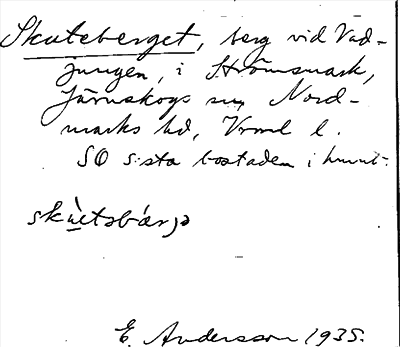 Skuteberget, berg vid Vad-
jungen, i Strömsmark,
Järnskogs sn, Nord-
marks hd, Vrml l.
SO sista bostaden i hmnt.
E. Andersson 1935.